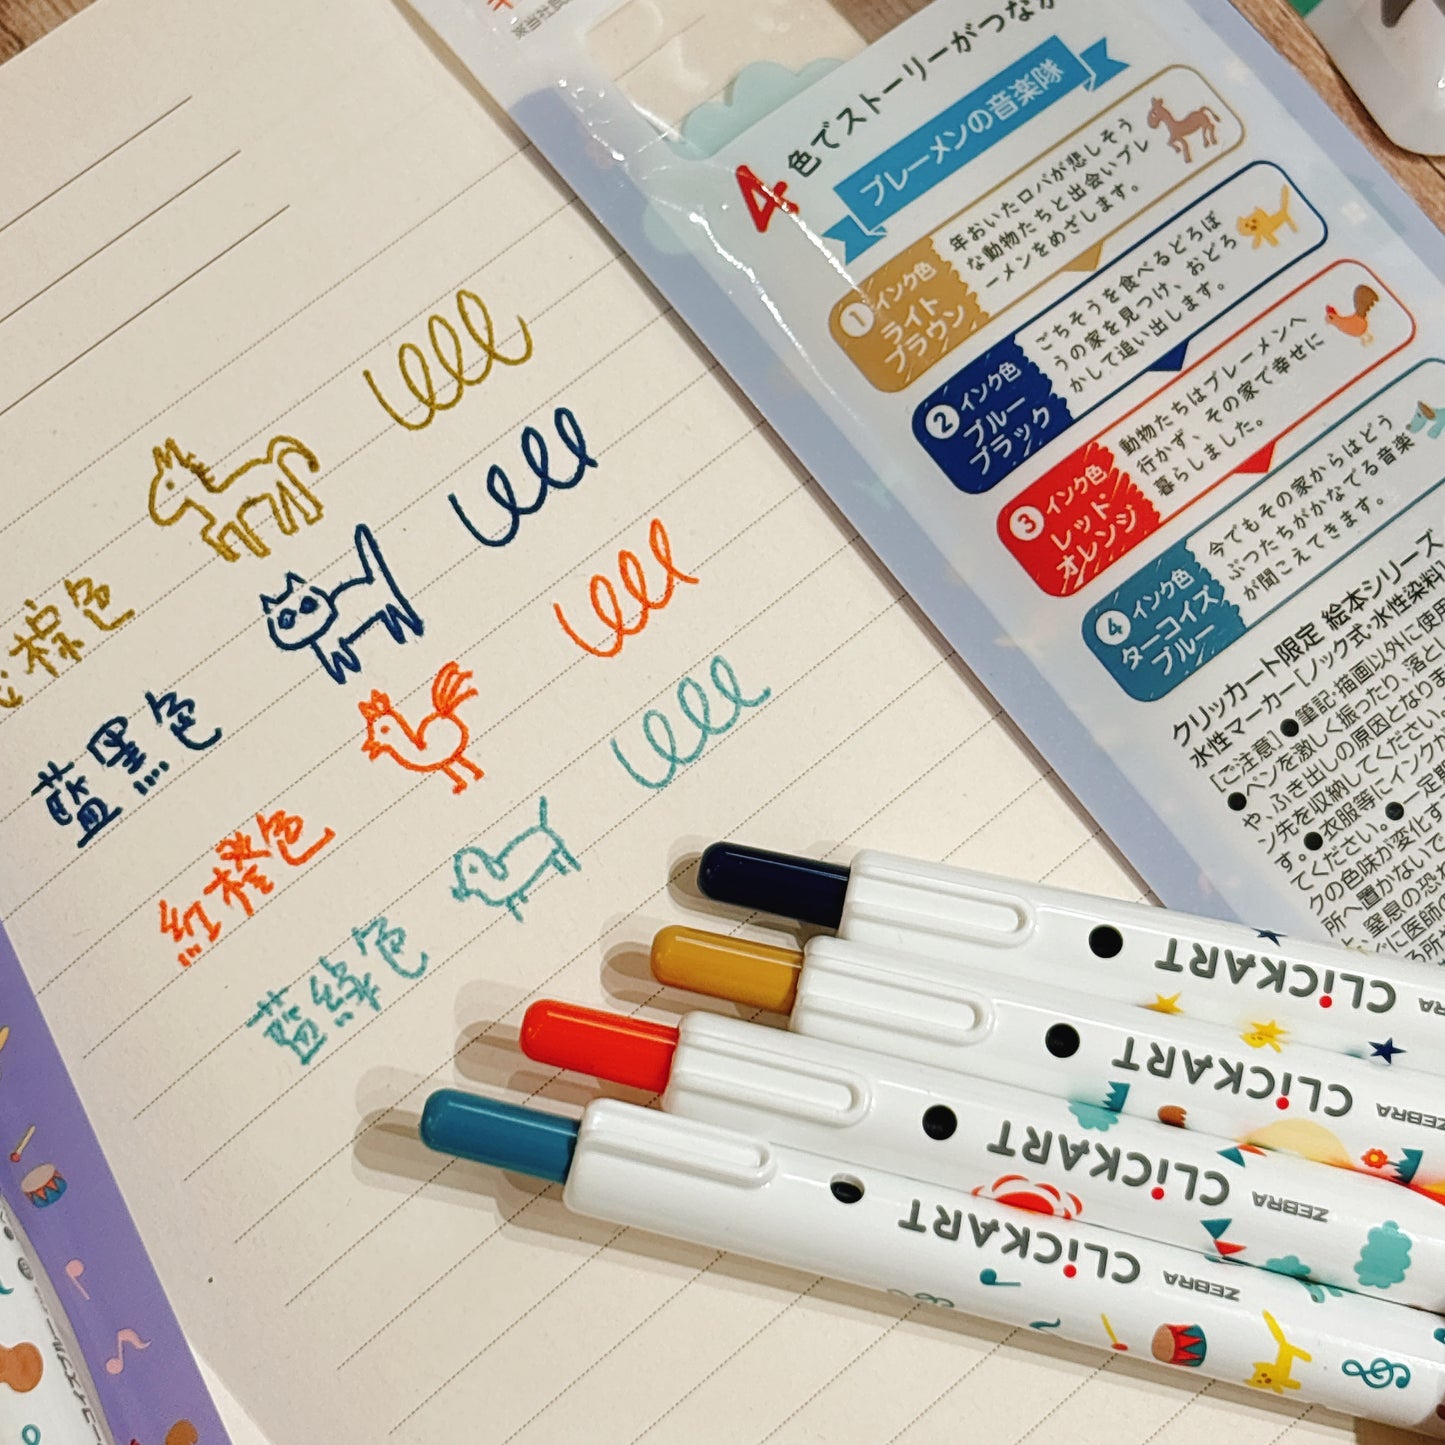 棕色
藍黑色
紅橙色
藍綠色
4色でストーリーがつなが
ブレーメンの音楽隊
1 インク色
ライト
ブラウン
年おいたロバが悲しそう
な動物たちと出会いブレ
ーメンをめざします。
2 インク色
ブルー
ブラック
ごちそうを食べるどろぼ
うの家を見つけ、おどろ
かして追い出します。
3 インク色
レッド
オレンジ
動物たちはブレーメンへ
行かず、その家で幸せに
暮らしました。
4 インク色
ターコイズ
ブルー
今でもその家からはどう
ぶつたちがかなでる音楽
が聞こえてきます。
クリッカート限定 絵本シリーズ
水性マーカー[ノック式・水性染料]
[ご注意]●筆記・描画以外に使用
●ペンを激しく振ったり、落とし
や、ふき出しの原因となりま
ン先を収納してください。
す。●衣服等にインクが
てください。●一定期
クの色味が変化す
所へ置かないで
、窒息の恐れ
ぐに医師の
CLiCKART
CLiCKART ZEBRA
CLiCKART ZEBRA
CLiCKART ZEBRA